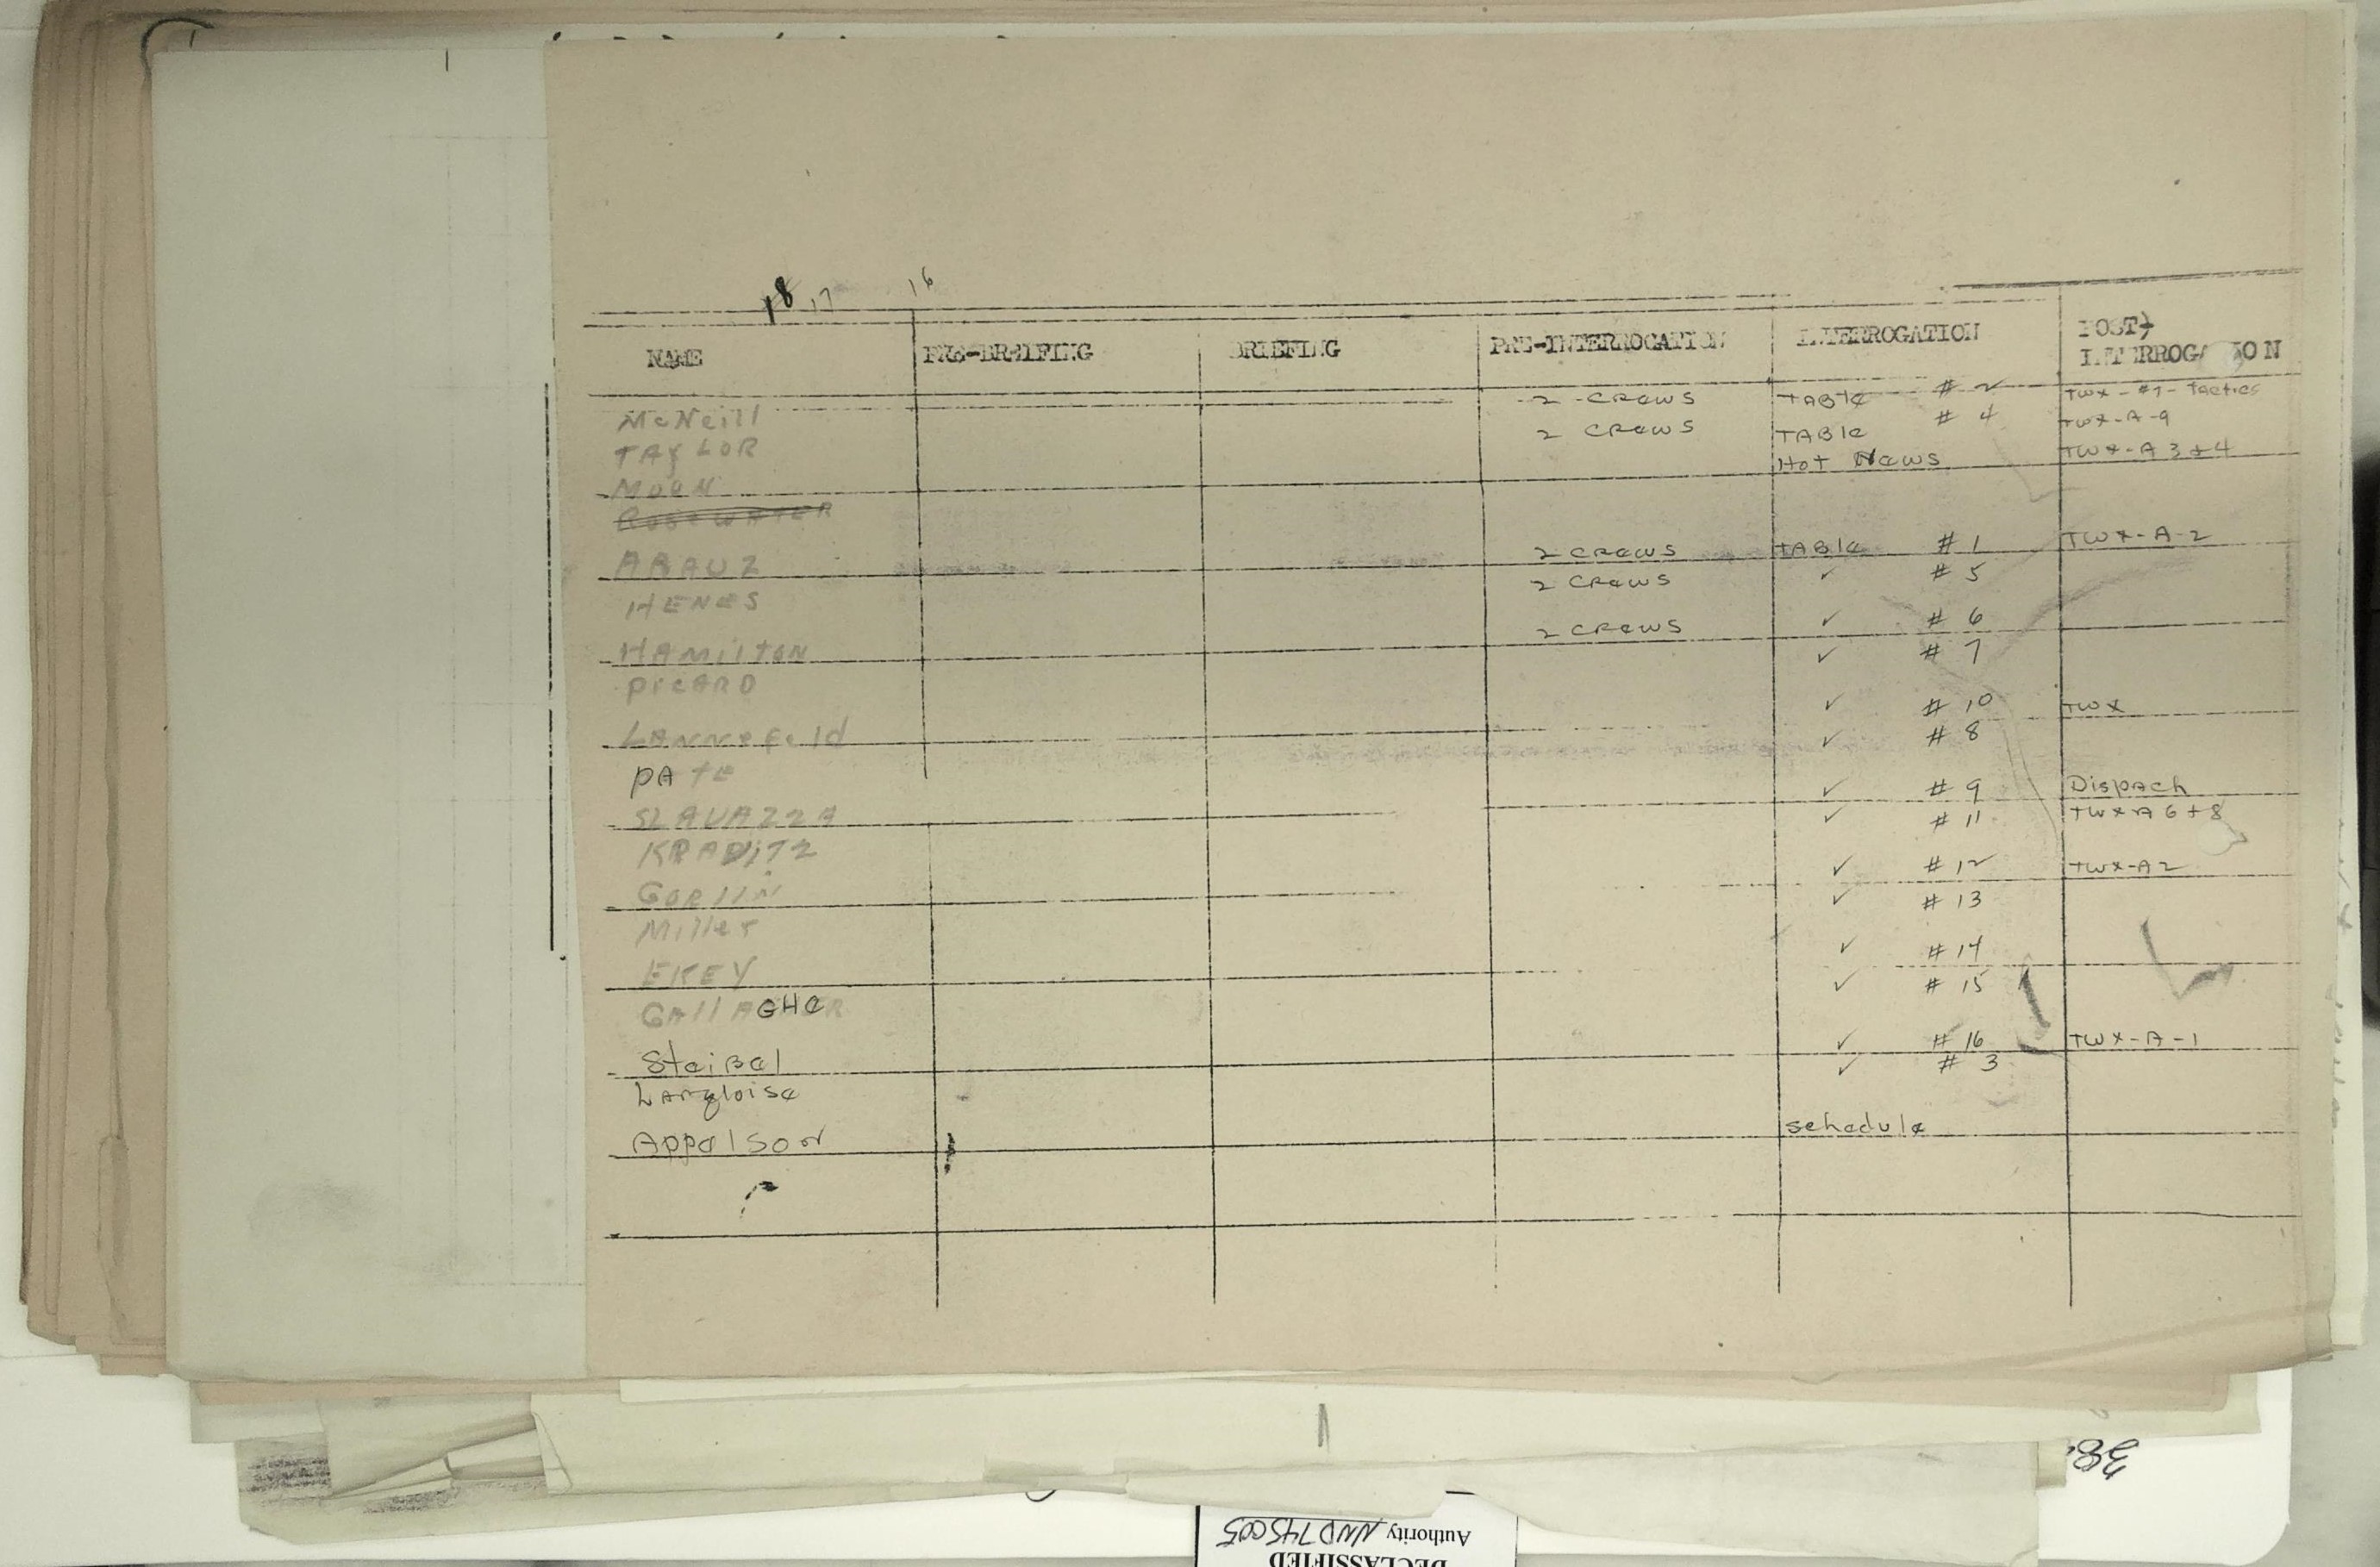 18 17 16
NAME PRE-BREIFING BRIEFING PRE-INTERROGATION INTERROGATION POST-
INTERROGATION
McNeill 2 CREWS TABLE # 2 TWX - #7 - TACTICS
TAYLOR 2 CREWS TABLE # 4 TWX-A-9
MOON HOT NEWS TWX-A 3+4
ROSEWATER
ARAUZ 2 CREWS TABLE # 1 TWX-A-2
HENES 2 CREWS ✓ # 5
HAMILTON 2 CREWS ✓ # 6
PICARD ✓ # 7
LANNEFELD ✓ # 10 TWX
PATE ✓ # 8
SLAVAZZA ✓ # 9 Dispach
KRADITZ ✓ # 11 TWX A 6+8
GORLIN ✓ # 12 TWX-A2
Miller ✓ # 13
EKEY ✓ # 14
GALLAGHER ✓ # 15
Steibel ✓ # 16 TWX-A-1
Langloise ✓ # 3
Appelson schedule
38
Authority NND745005
DECLASSIFIED